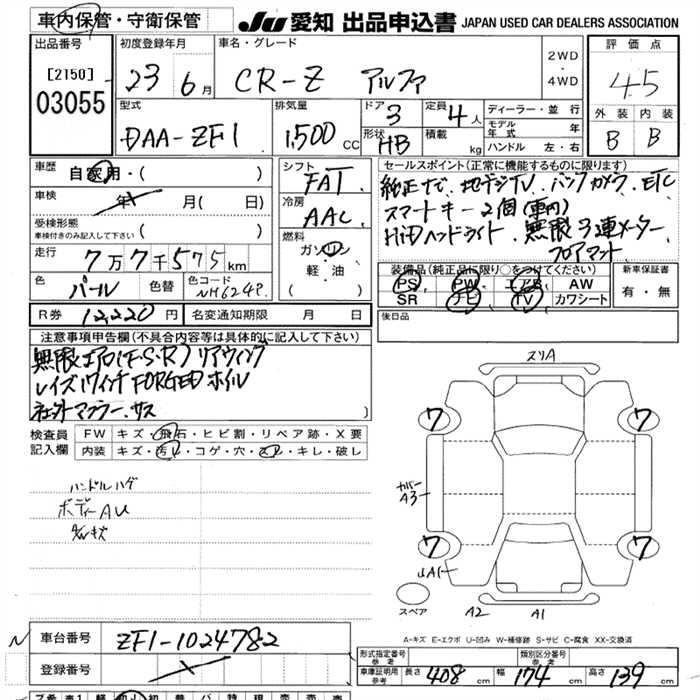 車内保管・守衛保管 JU 愛知 出品申込書 JAPAN USED CAR DEALERS ASSOCIATION
出品番号 初度登録年月 車名・グレード 評価点
[2150] 23年6月 CR-Z アルファ 2WD・4WD 4.5
03055 型式 排気量 ドア 3 定員 4人 ディーラー・並行 外装 内装
DAA-ZF1 1,500CC 形状 HB 積載 kg モデル年式 年 B B
ハンドル 左・右
車歴 自家用・( ) シフト FAT セールスポイント(正常に機能するものに限ります)
車検 年 月( 日) 冷房 AAC 純正ナビ、地デジTV、バックカメラ、ETC
受検形態 スマートキー2個(車内)
車検付きのみ記入して下さい ( ) 燃料 HiDヘッドライト、無限3連メーター
走行 7万7千575km ガソリン フロアマット
色 パール 色替 色コード NH624P 軽・油 ( ) 装備品(純正品に限り○をつけてください) 新車保証書
PS PW エアB AW 有・無
SR ナビ TV カワシート
R券 12,220円 名変通知期限 月 日 後日品
注意事項申告欄(不具合箇所等は具体的に記入して下さい)
無限エアロ(F・S・R)リアウィング
レイズ17インチFORGEDホイル
社外マフラー、サス
検査員記入欄 FW キズ・飛石・ヒビ割・リペア跡・X要
内装 キズ・汚レ・コゲ・穴・スレ・キレ・破レ
ハンドルハゲ
ボディーAU
キズ
スリA
7 7
カバーA3
7 7
A1
スペア A2 A1
A-キズ E-エクボ U-凹み W-補修跡 S-サビ C-腐食 XX-交換済
N 車台番号 ZF1-1024782
登録番号
形式指定番号 参考 類別区分番号 参考
車庫証明用参考 長さ 408cm 幅 174cm 高さ 139cm